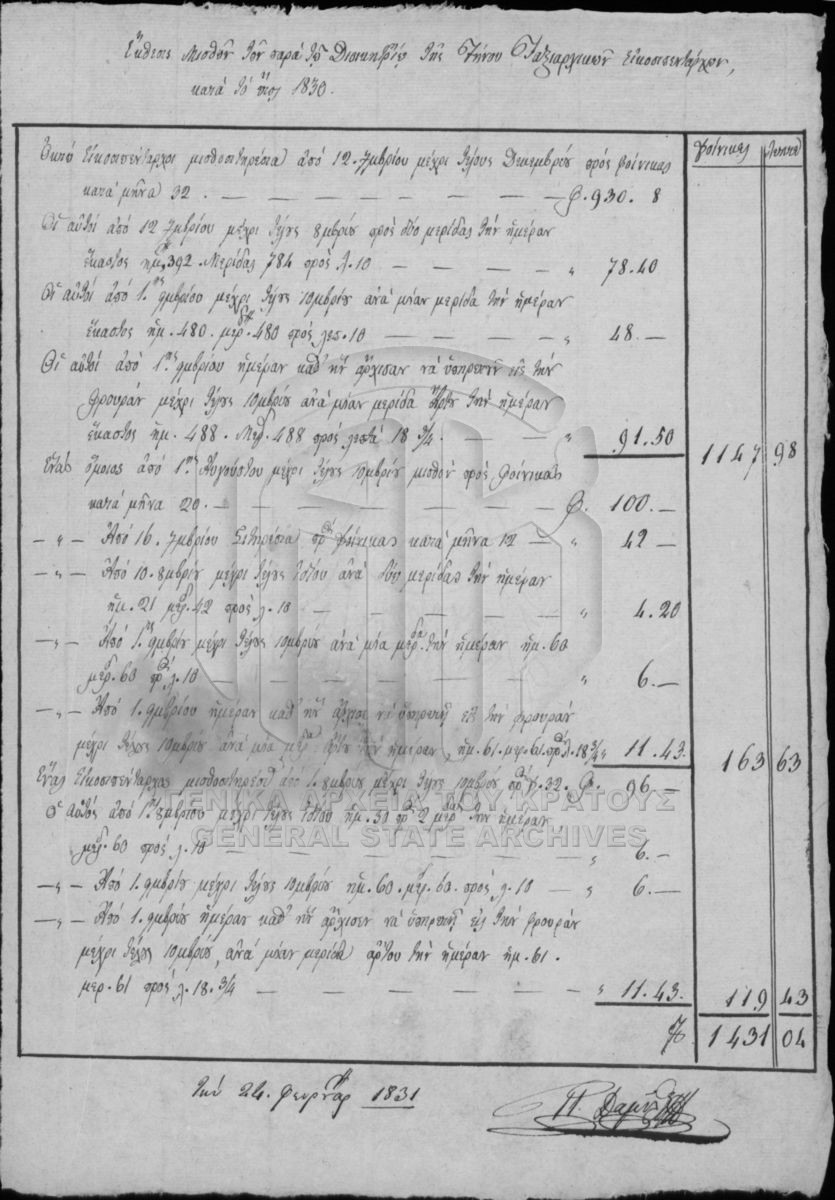 Ἔκθεσις Μισθῶν τῶν παρὰ τῷ Διοικητῇ τῆς Τήνου Ταξιαρχικῶν εἰκοσιπεντάρχων,
κατὰ τὸ ἔτος 1830.
φοίνικες λεπτὰ
Ὀκτὼ εἰκοσιπένταρχοι μισθοσιτηρέσια ἀπὸ 12. 7μβρίου μέχρι τέλους Δεκεμβρίου πρὸς φοίνικας
κατὰ μῆνα 32. — φ. 930. 8
Οἱ αὐτοὶ ἀπὸ 12 7μβρίου μέχρι τέλους 8μβρίου πρὸς δύο μερίδας τὴν ἡμέραν
ἕκαστος ἡμ. 392. Μερίδας 784 πρὸς λ. 10 — " 78.40
Οἱ αὐτοὶ ἀπὸ 1.ης 9μβρίου μέχρι τέλους 10μβρίου ἀνὰ μίαν μερίδα τὴν ἡμέραν
ἕκαστος ἡμ. 480. μερ. 480 πρὸς λεπ. 10 — " 48. —
Οἱ αὐτοὶ ἀπὸ 1ης 9μβρίου ἡμέραν καθ' ἣν ἄρχισαν νὰ ὑπηρετοῦν εἰς τὴν
φρουρὰν μέχρι τέλους 10μβρίου ἀνὰ μίαν μερίδα ἄρτου τὴν ἡμέραν
ἕκαστος ἡμ. 488. Μερ. 488 πρὸς λεπτὰ 18 3/4 — " 91.50 1147 98
Ἕνας ὅμοιος ἀπὸ 1ης Αὐγούστου μέχρι τέλους 10μβρίου μισθὸν πρὸς φοίνικας
κατὰ μῆνα 20 — φ. 100. —
— " — Ἀπὸ 16. 7μβρίου σιτηρέσια πρὸς φοίνικας κατὰ μῆνα 12 — " 42 —
— " — Ἀπὸ 10. 8μβρίου μέχρι τέλους τούτου ἀνὰ δύο μερίδας τὴν ἡμέραν
ἡμ. 21 μερ. 42 πρὸς λ. 10 — " 4.20
— " — Ἀπὸ 1.ης 9μβρίου μέχρι τέλους 10μβρίου ἀνὰ μία μερίδα τὴν ἡμέραν ἡμ. 60
μερ. 60 πρὸς λ. 10 — " 6. —
— " — Ἀπὸ 1. 9μβρίου ἡμέραν καθ' ἣν ἄρχισε νὰ ὑπηρετῇ εἰς τὴν φρουρὰν
μέχρι τέλους 10μβρίου ἀνὰ μία μερίδα ἄρτου τὴν ἡμέραν, ἡμ. 61. μερ. 61. πρὸς λ. 18 3/4 " 11.43. 163 63
Ἕνας Εἰκοσιπένταρχος μισθοσιτηρέσια ἀπὸ 1. 8μβρίου μέχρι τέλους 10μβρίου πρὸς φ. 32. φ. 96 —
Ὁ αὐτὸς ἀπὸ 1. 8μβρίου μέχρι τέλους τούτου ἡμ. 30 πρὸς 2 μερίδας τὴν ἡμέραν
μερ. 60 πρὸς λ. 10 — " 6. —
— " — Ἀπὸ 1. 9μβρίου μέχρι τέλους 10μβρίου ἡμ. 60. μερ. 60. πρὸς λ. 10 — " 6. —
— " — Ἀπὸ 1. 9μβρίου ἡμέραν καθ' ἣν ἄρχισεν νὰ ὑπηρετῇ εἰς τὴν φρουρὰν
μέχρι τέλους 10μβρίου, ἀνὰ μίαν μερίδα ἄρτου τὴν ἡμέραν ἡμ. 61.
μερ. 61 πρὸς λ. 18. 3/4 — " 11.43. 119 43
φ. 1431 04
τὴν 24. Φευρουαρ 1831
Π.
ΓΕΝΙΚΑ ΑΡΧΕΙΑ ΤΟΥ ΚΡΑΤΟΥΣ
GENERAL STATE ARCHIVES